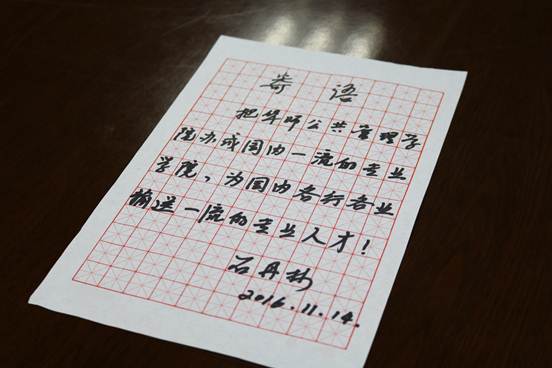 寄语
把华师公共管理学
院办成国内一流的专业
学院，为国内各行各业
输送一流的专业人才！
石丹彬
2016.11.14.